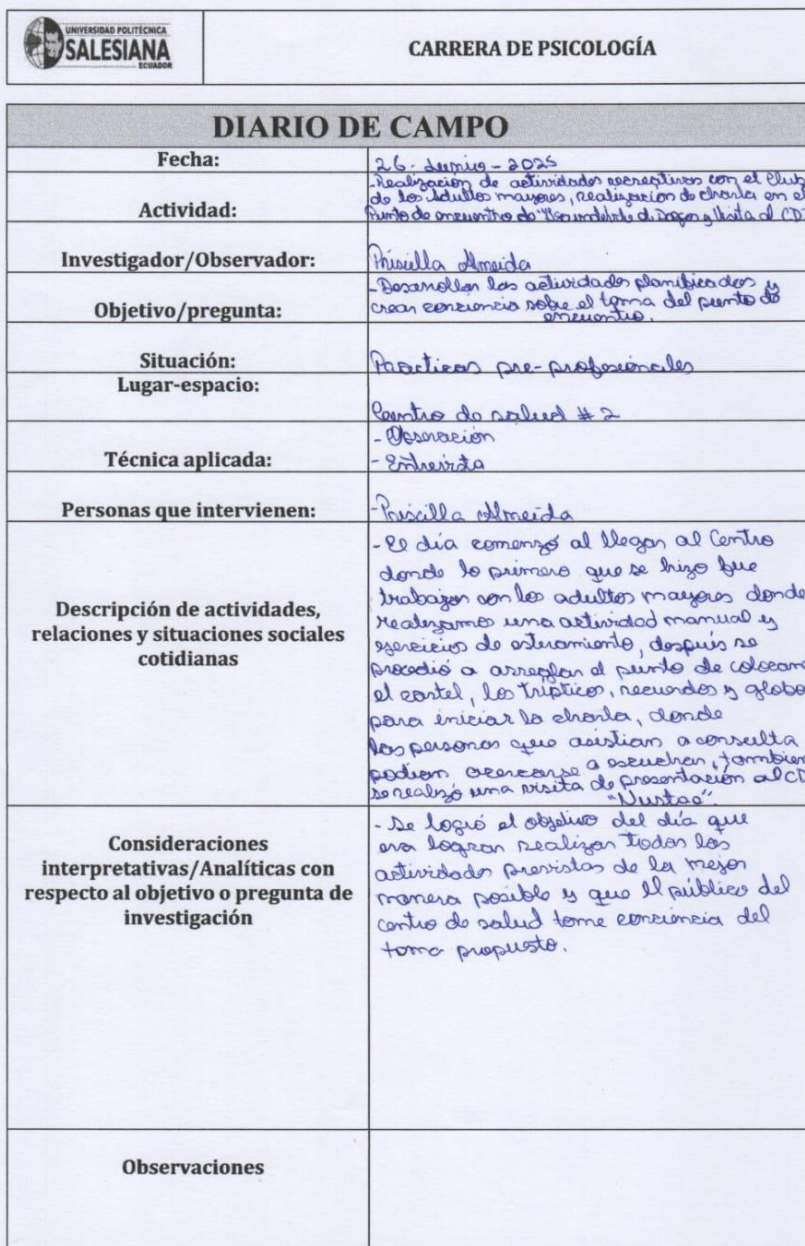 UNIVERSIDAD POLITÉCNICA
SALESIANA
ECUADOR
CARRERA DE PSICOLOGÍA
DIARIO DE CAMPO
Fecha:
26 - Junio - 2025
Actividad:
- Realización de actividades recreativas con el Club
de los Adultos mayores, realización de charla en el
Punto de encuentro de "Uso indebido de Drogas y Visita al CDI
Investigador/Observador:
Priscilla Almeida
Objetivo/pregunta:
- Desarrollar las actividades planificadas y
crear conciencia sobre el tema del punto de
encuentro.
Situación:
Practicas pre-profesionales
Lugar-espacio:
Centro de salud # 2
Técnica aplicada:
- Observación
- Entrevista
Personas que intervienen:
- Priscilla Almeida
Descripción de actividades,
relaciones y situaciones sociales
cotidianas
- El día comenzó al llegar al Centro
donde lo primero que se hizo fue
trabajar con los adultos mayores donde
realizamos una actividad manual y
ejercicios de estiramiento, después se
procedió a arreglar el punto de colocando
el cartel, los trípticos, recuerdos y globo
para iniciar la charla, donde
las personas que asistian a consulta
podian acercarse a escuchar, tambien
se realizó una visita de presentación al CD
Consideraciones
interpretativas/Analíticas con
respecto al objetivo o pregunta de
investigación
- Se logró el objetivo del día que
era lograr realizar todas las
actividades previstas de la mejor
manera posible y que el público del
centro de salud tome conciencia del
tema propuesto.
Observaciones